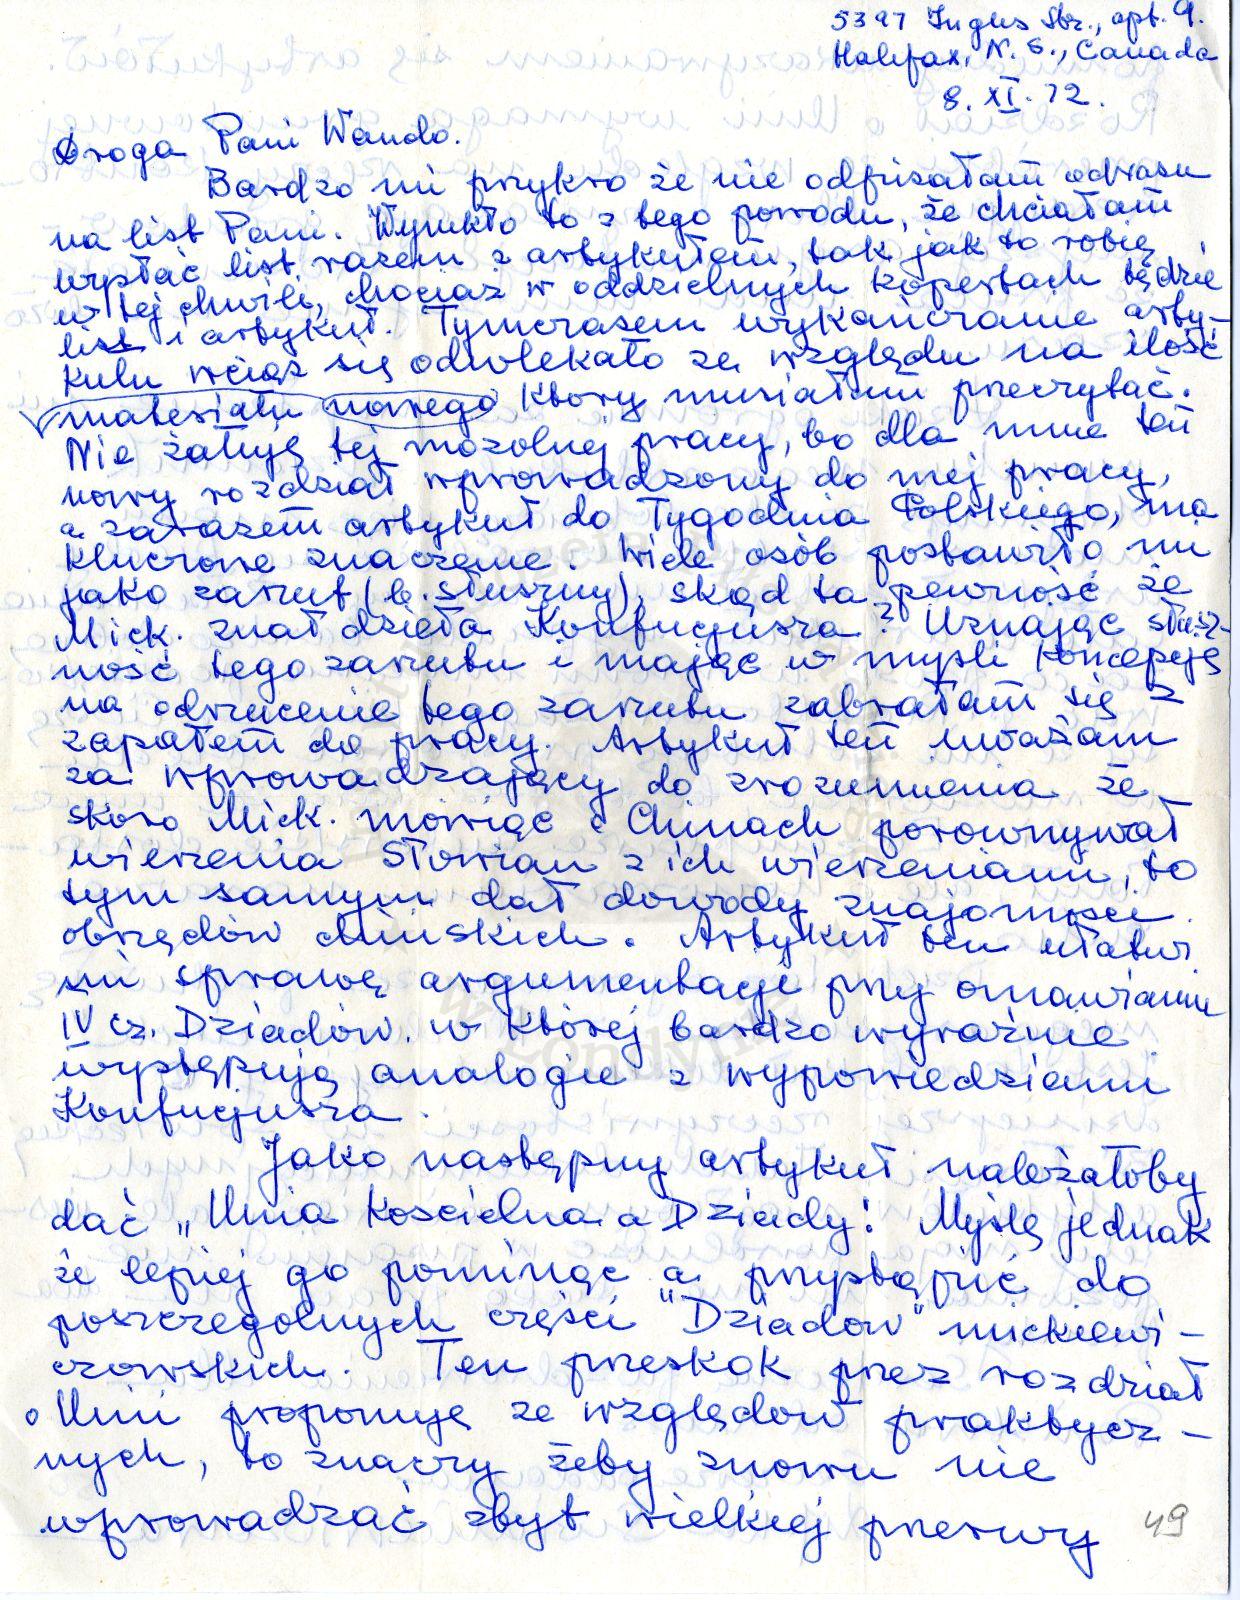 5397 Inglis Str., apt. 9.
Halifax, N. S., Canada
8. XI. 72.
Droga Pani Wando.
Bardzo mi przykro że nie odpisałam odrazu
na list Pani. Wynikło to z tego powodu, że chciałam
wysłać list razem z artykułem, tak jak to robię
w tej chwili, chociaż w oddzielnych kopertach będzie
list i artykuł. Tymczasem wykańczanie arty-
kułu wciąż się odwlekało ze względu na ilość
materiału nowego który musiałam przeczytać.
Nie żałuję tej mozolnej pracy, bo dla mnie ten
nowy rozdział wprowadzony do mej pracy,
a zarazem artykuł do Tygodnia Polskiego, ma
kluczowe znaczenie. Wiele osób postawiło mi
jako zarzut (b. słuszny), skąd ta pewność że
Mick. znał dzieła Konfucjusza? Uznając słusz-
ność tego zarzutu i mając w myśli koncepcję
na odrzucenie tego zarzutu zabrałam się z
zapałem do pracy. Artykuł ten uważam
za wprowadzający do zrozumienia że
skoro Mick. mówiąc o Chinach porównywał
wierzenia Słowian z ich wierzeniami, to
tym samym dał dowody znajomości
obrzędów chińskich. Artykuł ten ułatwi
mi sprawę argumentacji przy omawianiu
IV cz. Dziadów. w której bardzo wyraźnie
występują analogie z wypowiedziami
Konfucjusza.
Jako następny artykuł należałoby
dać „Unia Kościelna a Dziady". Myślę jednak
że lepiej go pominąć a przystąpić do
poszczególnych części "Dziadów" mickiewi-
czowskich. Ten przeskok przez rozdział
o Unii proponuję ze względów praktycz-
nych, to znaczy żeby znowu nie
wprowadzać zbyt wielkiej przerwy
49